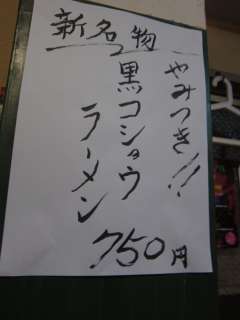 新名物
やみつき!!
黒コショウ
ラーメン
750円